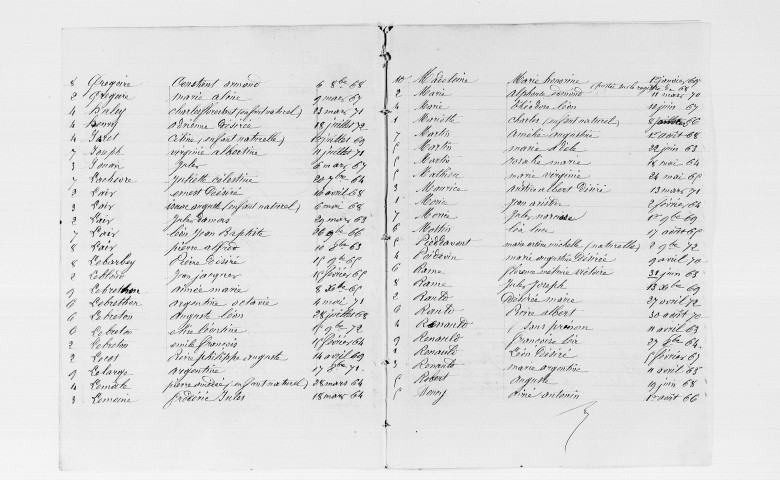 8 Gregoire Constant armand 6 8bre 68
2 Gregoire marie aline 9 mars 67
4 Haley charles florent (enfant naturel) 13 mars 71
4 Henry adrienne Désirée 18 juillet 72
4 Jaret Céline (enfant naturelle) 12 juillet 69
7 Joseph virginie albertine 11 juillet 71
3 Jouan Jules 6 mars 67
7 Lachèvre Juliette célestine 20 9bre 64
2 Lair ernest Désiré 10 avril 68
3 Lair auguste (enfant naturel) 6 mai 68
2 Lair Jules 29 mars 63
7 Lair léon Jean Baptiste 26 9bre 66
8 Lair pierre alfred 10 8bre 63
8 Lebarbey Désiré 18 9bre 65
2 Jean jacques 18 février 65
9 Lebrethon aimée marie 8 Xbre 65
6 Lebrethon argentine octavie 4 mai 71
6 Lebreton auguste léon 28 juillet 68
2 Lebreton léontine 1er 9bre 72
2 Lebreton emile françois 15 février 64
2 Locas philippe auguste 14 avril 69
9 Lelarge argentine 17 8bre 71
4 Lemale pierre amédée (enfant naturel) 28 mars 64
3 Lemoine frédéric Jules 18 mars 64
10 Madeleine Marie honorine 1er janvier 69
(portée sur le registre de 68
2 Marie alphonse edmond 11 mars 70
4 Marie théodore léon 10 juin 67
1 Mariette Charles (enfant naturel) 66
7 Martin Amélie augustine 12 août 68
5 Martin marie adèle 22 juin 63
5 Martin rosalie marie 12 mai 64
5 Mathieu marie virginie 24 mai 65
3 Maurice andré albert Désiré 13 mars 71
1 Morin Jean 2 février 64
7 Morin Jules narcisse 12 9bre 69
6 Mottin léa 17 août 65
5 Pieddavant marie michelle (naturelle) 2 9bre 72
4 Poidevin marie augustine Désirée 9 avril 70
6 Rame florence mélanie victoire 31 juin 63
8 Rame Jules Joseph 13 Xbre 69
2 Rault Désirée marie 27 avril 72
6 Rault albert 30 août 70
4 Renault (sans prénom 11 avril 63
9 Renault françoise léa 27 9bre 64
1 Renault Léon Désiré 5 février 65
3 Renault marie argentine 11 avril 68
5 Robert auguste 19 juin 68
5 antonin 12 août 66